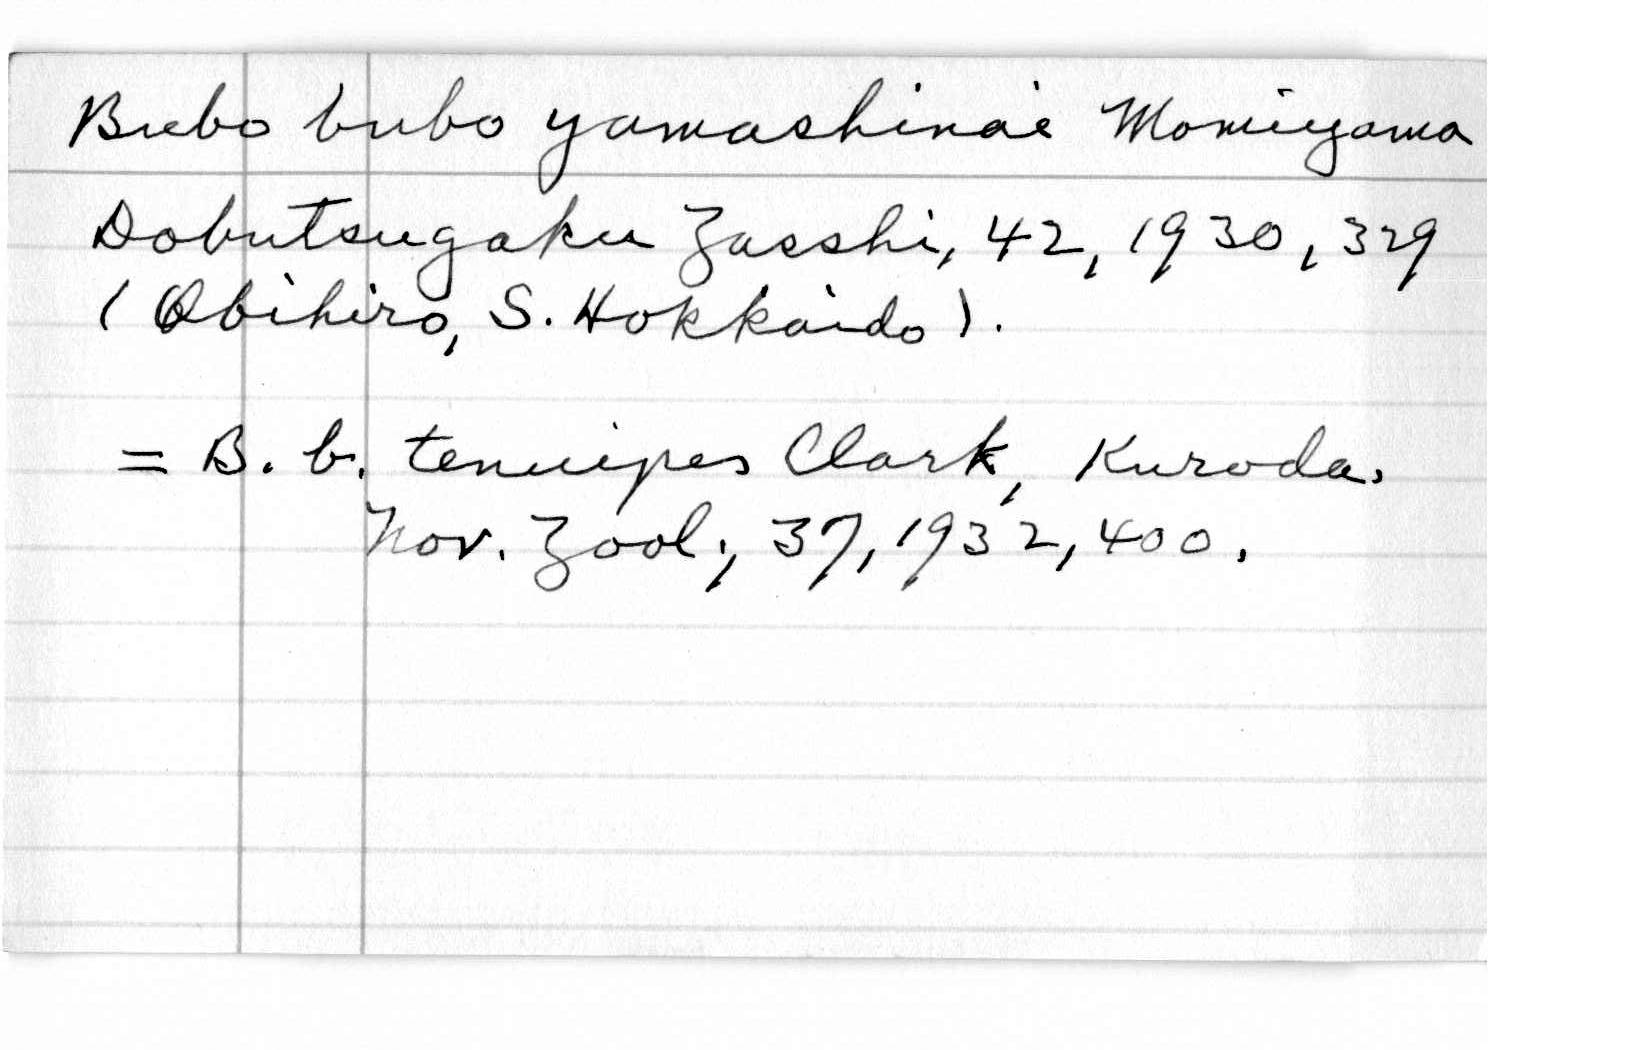 Bubo bubo yamashinai Momiyama
Dobutsugaku Zasshi, 42, 1930, 329
(Obihiro, S. Hokkaido).
= B. b. tenuipes Clark, Kuroda,
Nov. Zool., 37, 1932, 400.